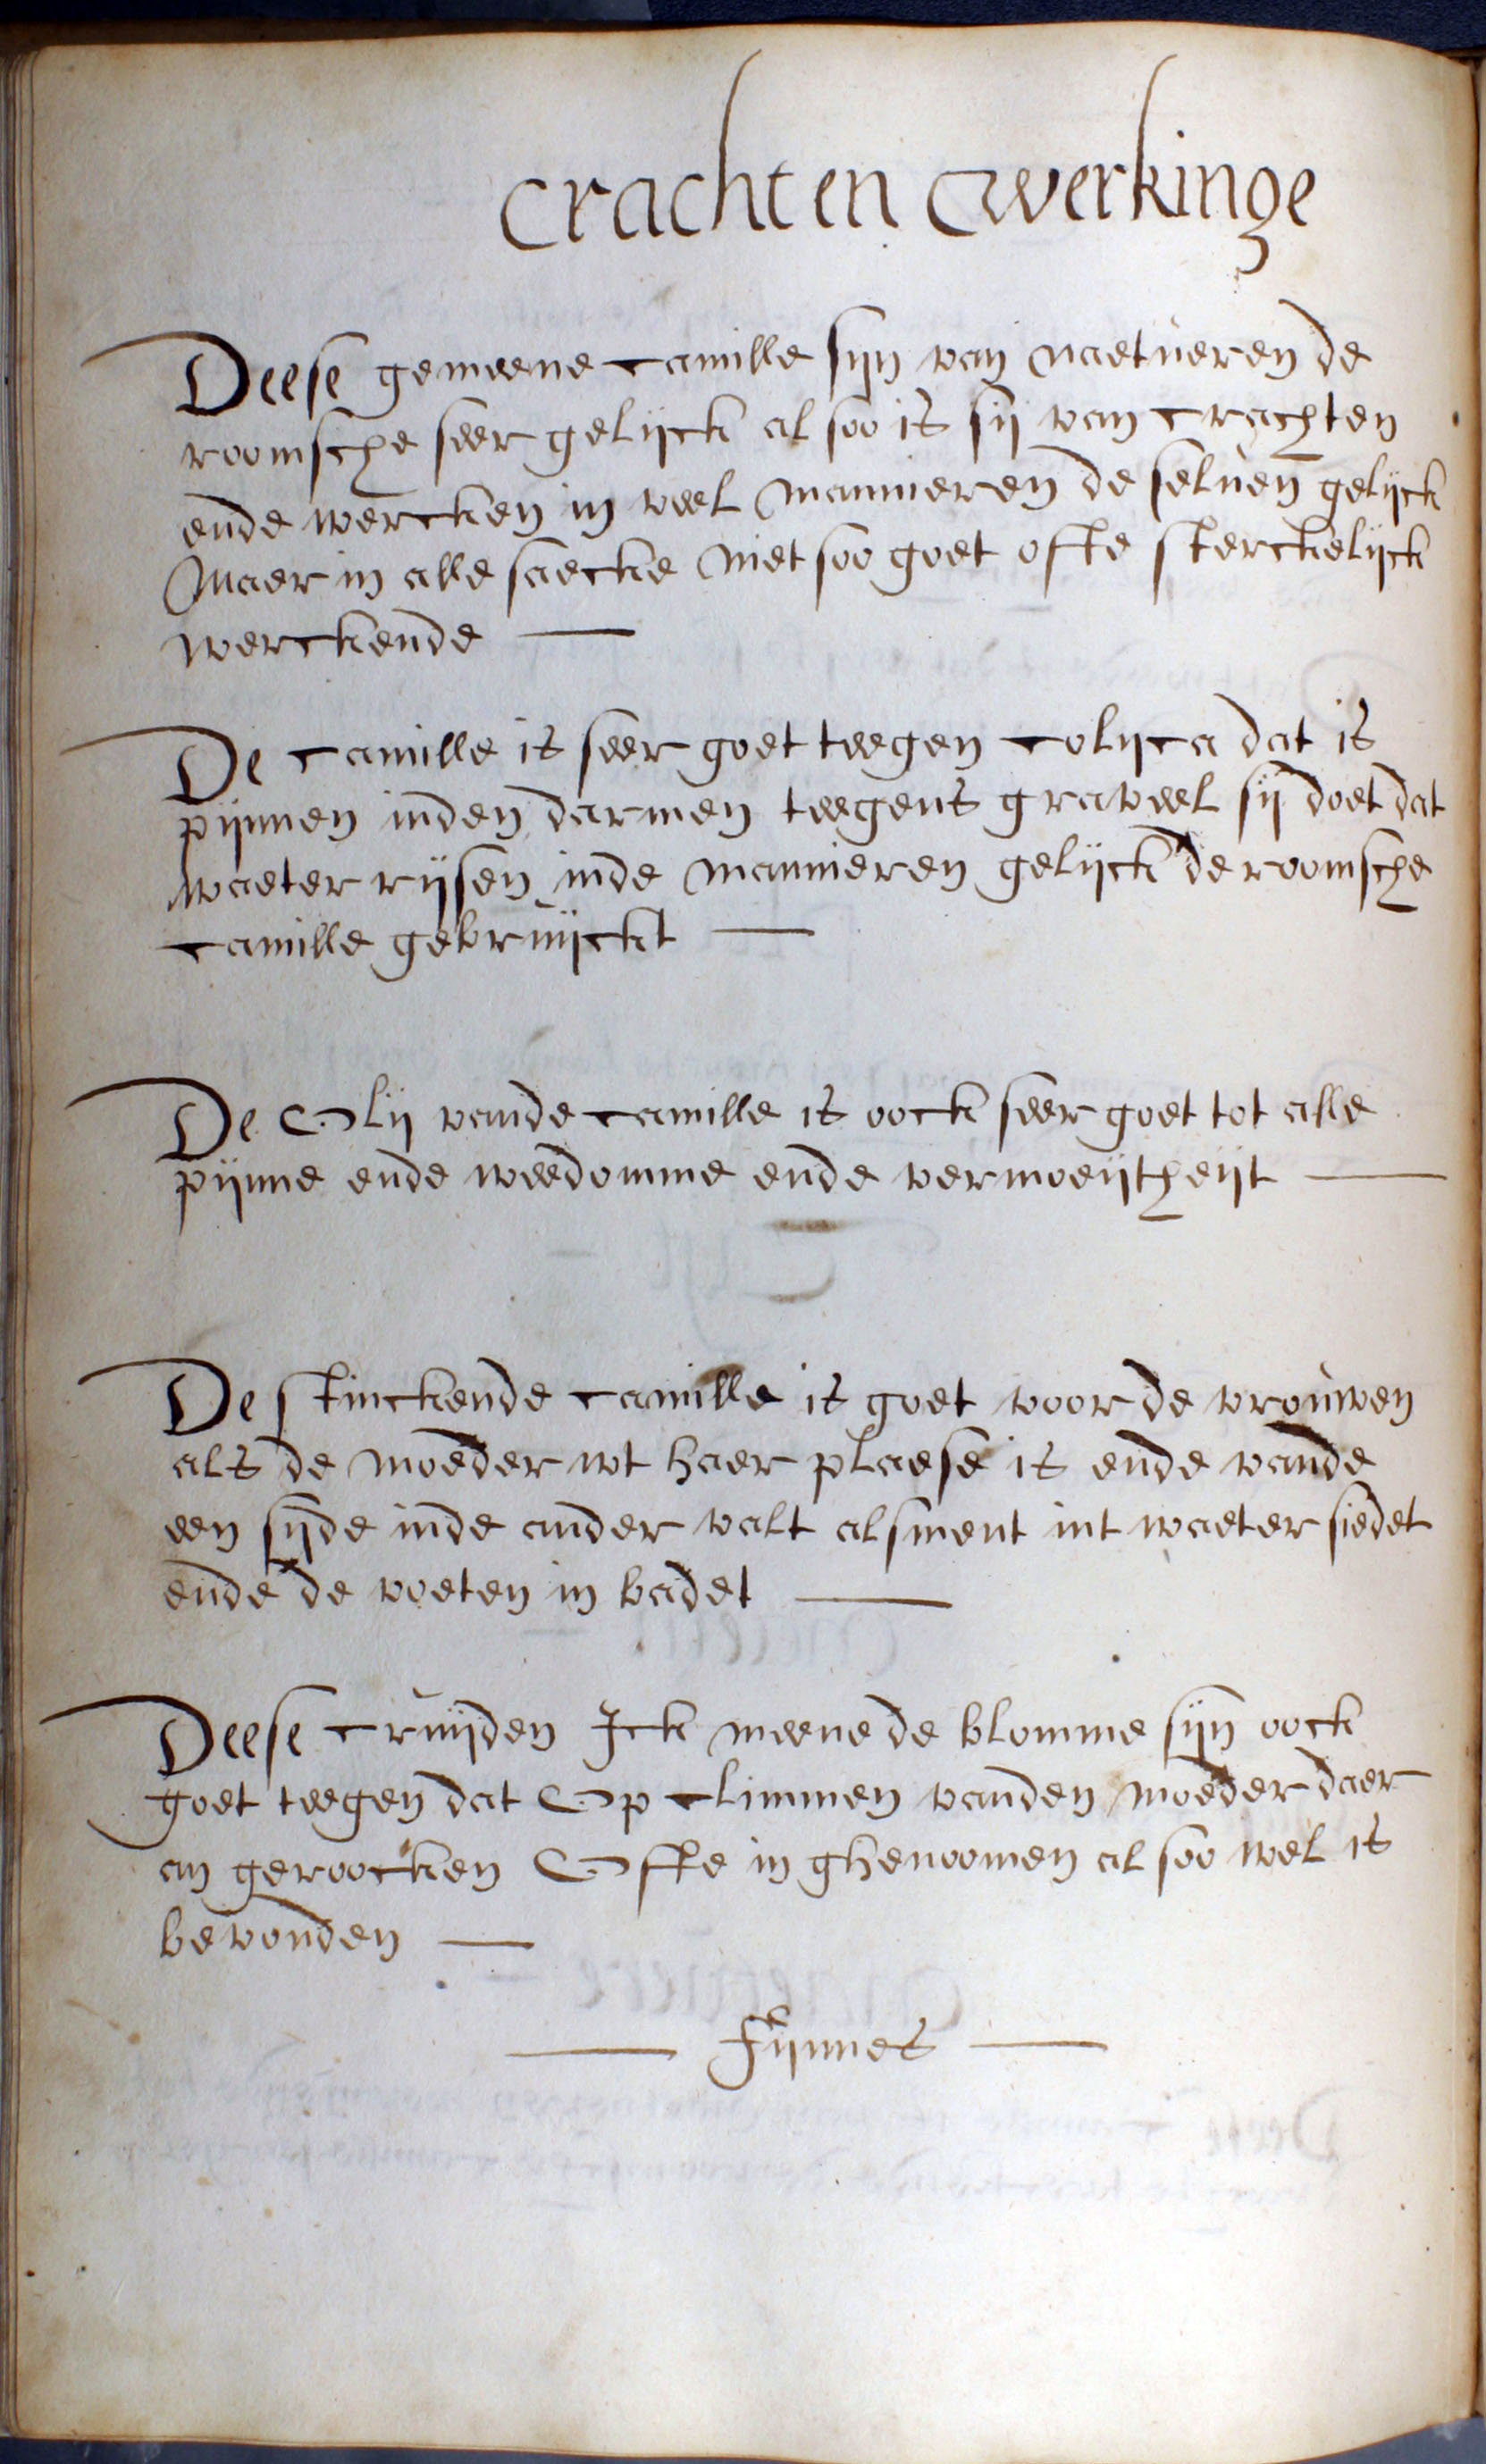 Cracht en Werkinge
Deese gemeene camille sijn van naetueren de
roomsche seer gelijck al soo is sij van crachten
ende wercken in veel mannieren de seluen gelijck
Maer in alle saecke niet soo goet ofte sterckelijck
werckende —
De camille is seer goet teegen colijca dat is
pijnnen inden darmen teegens graveel sij doet dat
waeter rijsen inde mannieren gelijck de roomsche
camille gebruijckt —
De Olij vande camille is oock seer goet tot alle
pijnne ende weedomme ende vermoeijtheijt —
De stinckende camille is goet voor de vrouwen
als de moeder wt haer plaese is ende vande
een sijde inde ander valt alsment int waeter siedet
ende de voeten in badet —
Deese cruijden Ick meene de blomme sijn oock
goet teegen dat Op climmen vanden moeder daer
an geroocken Ofte in ghenoomen al soo wel is
bevonden —
— Fijnnes —